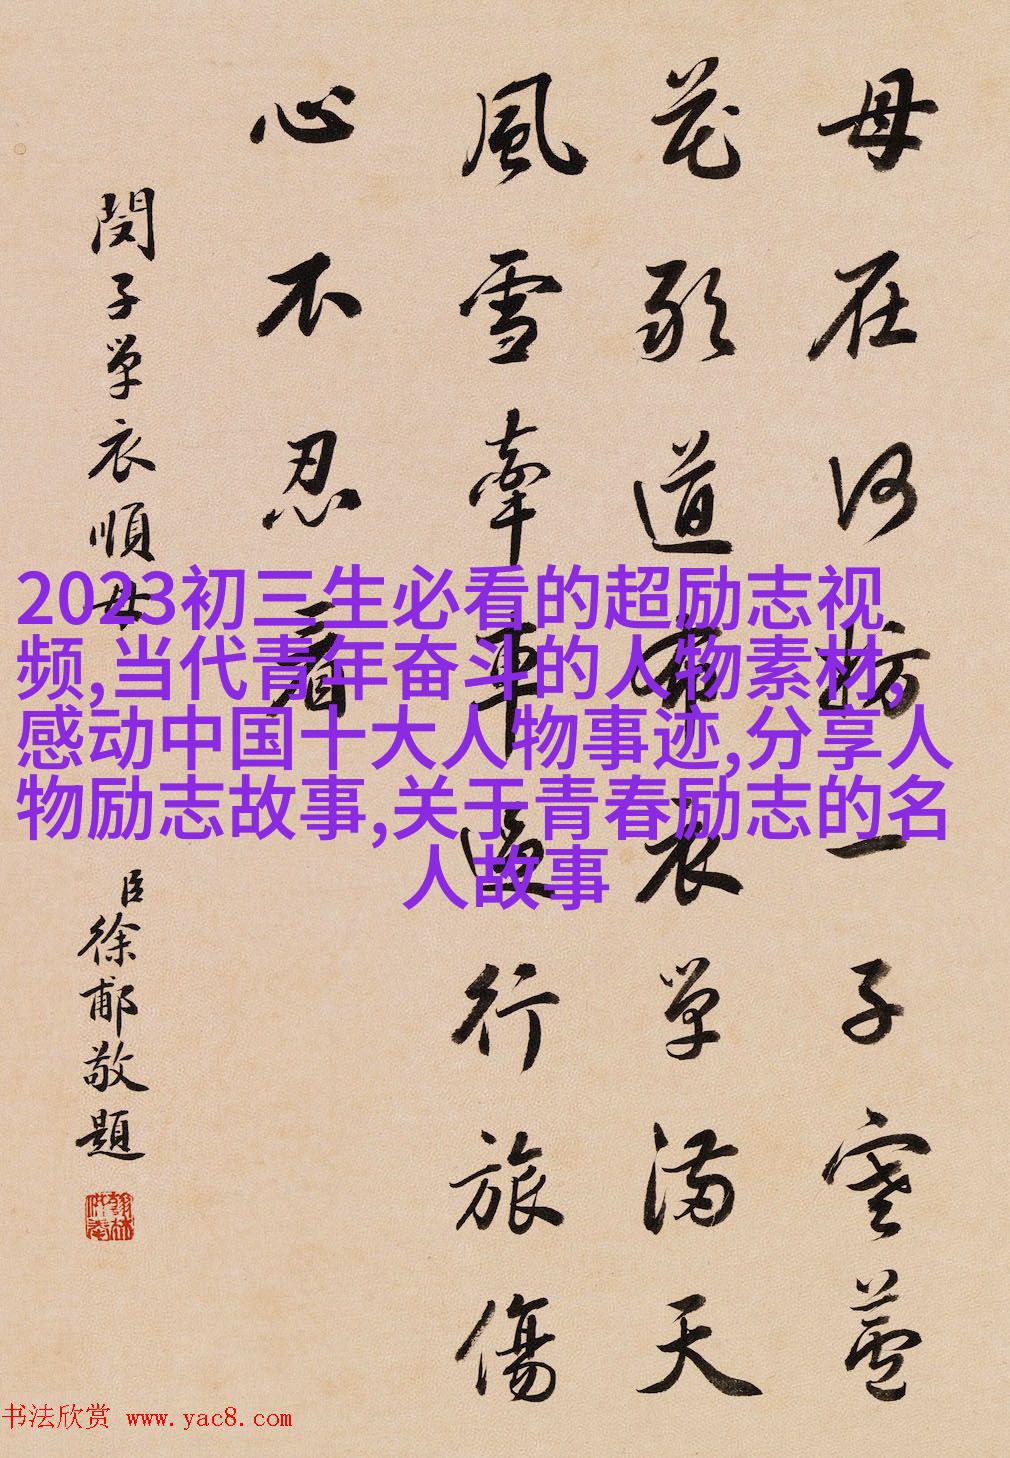 母在何妨一子寒蘆
花敢道布衣單滿天
風雪牽車過行旅傷
心不忍看
閔子單衣順母
臣徐郙敬題
翰林供奉
2023初三生必看的超励志视
频,当代青年奋斗的人物素材,
感动中国十大人物事迹,分享人
物励志故事,关于青春励志的名
人故事
书法欣赏 www.yac8.com